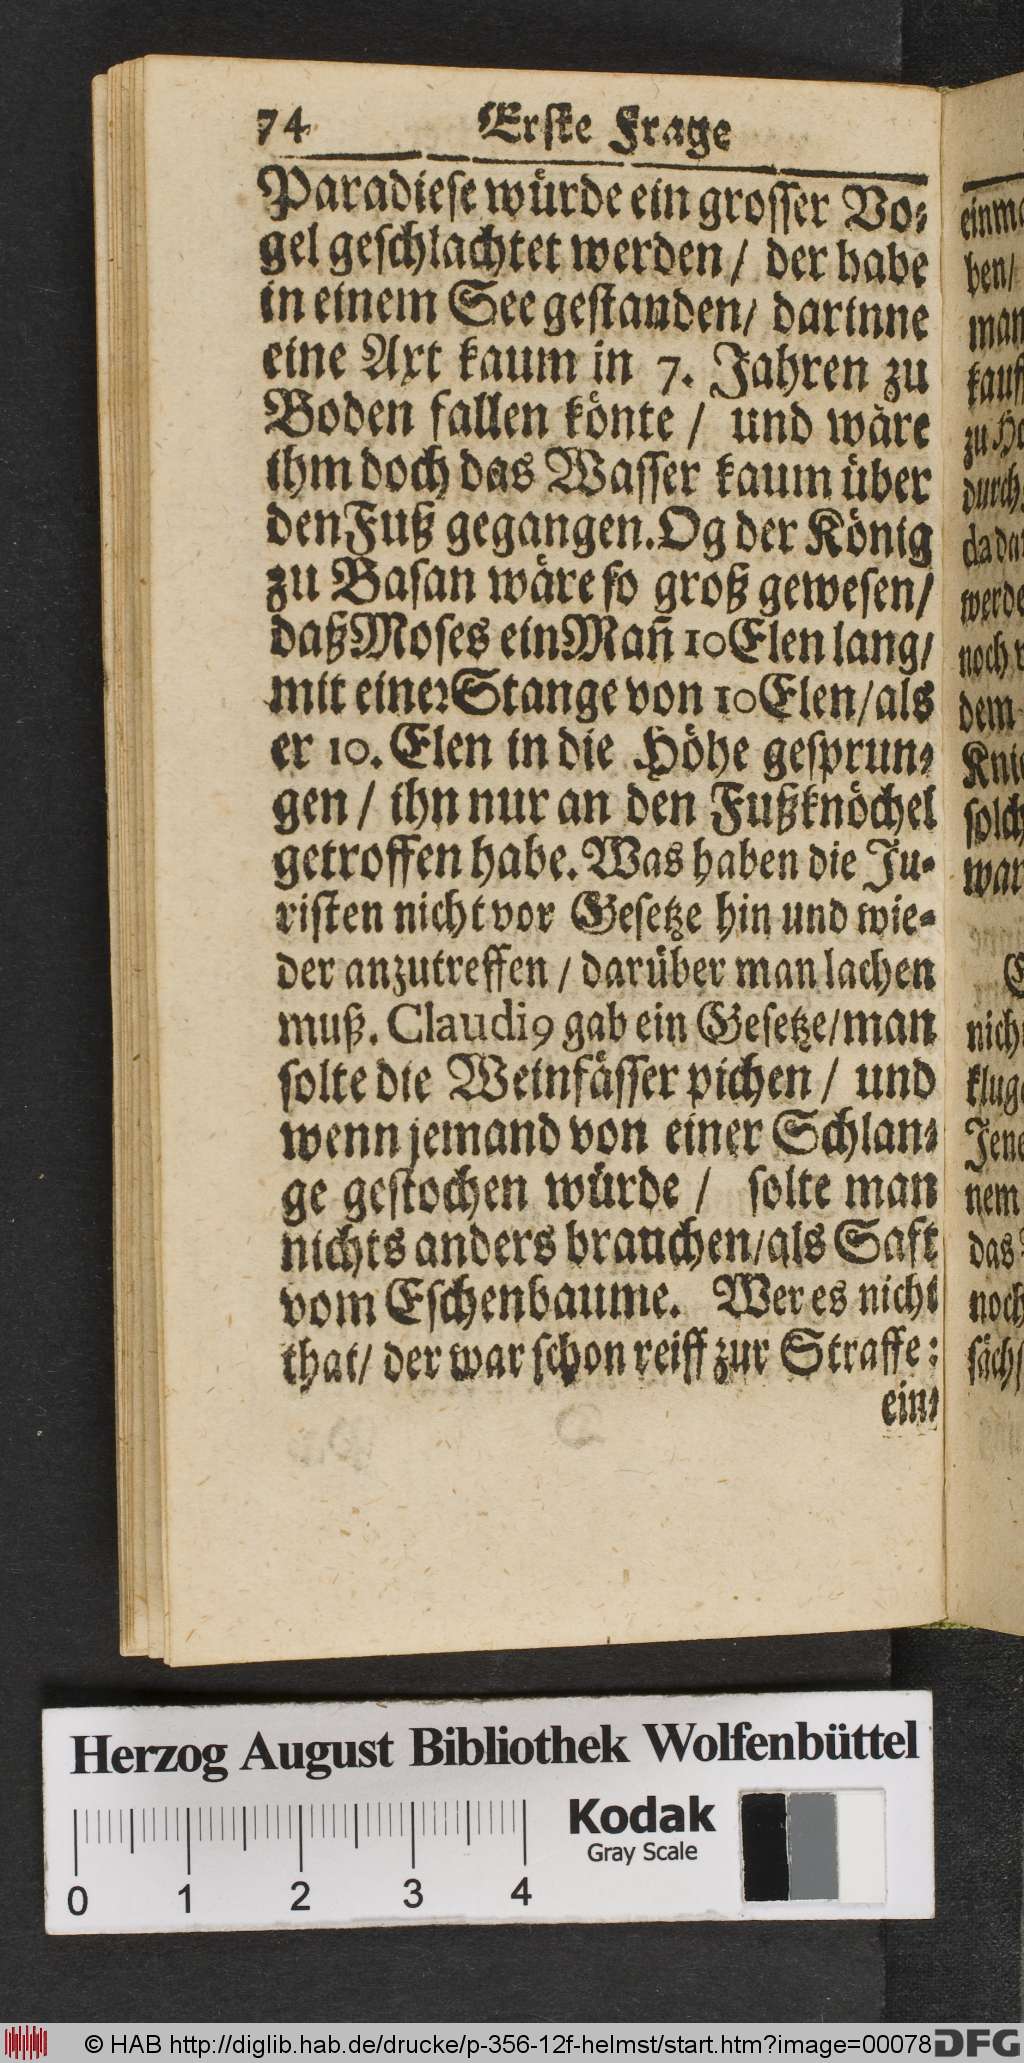 74 Erste Frage
Paradiese würde ein grosser Vo-
gel geschlachtet werden / der habe
in einem See gestanden / darinne
eine Axt kaum in 7. Jahren zu
Boden fallen könte / und wäre
ihm doch das Wasser kaum über
den Fuß gegangen. Og der König
zu Basan wäre so groß gewesen /
daß Moses ein Mañ 10 Elen lang /
mit einer Stange von 10 Elen / als
er 10. Elen in die Höhe gesprun-
gen / ihn nur an den Fußknöchel
getroffen habe. Was haben die Ju-
risten nicht vor Gesetze hin und wie-
der anzutreffen / darüber man lachen
muß. Claudi9 gab ein Gesetze / man
solte die Weinfässer pichen / und
wenn jemand von einer Schlan-
ge gestochen würde / solte man
nichts anders brauchen / als Saft
vom Eschenbaume. Wer es nicht
that / der war schon reiff zur Straffe:
ein-
einma
ben/
man
kauf
zu Ho
durch
da da
werde
noch
dem
Knie
solch
war
nich
kluge
Jene
nem
das
noch
sächs
Herzog August Bibliothek Wolfenbüttel
Kodak
Gray Scale
0 1 2 3 4
© HAB http://diglib.hab.de/drucke/p-356-12f-helmst/start.htm?image=00078
DFG